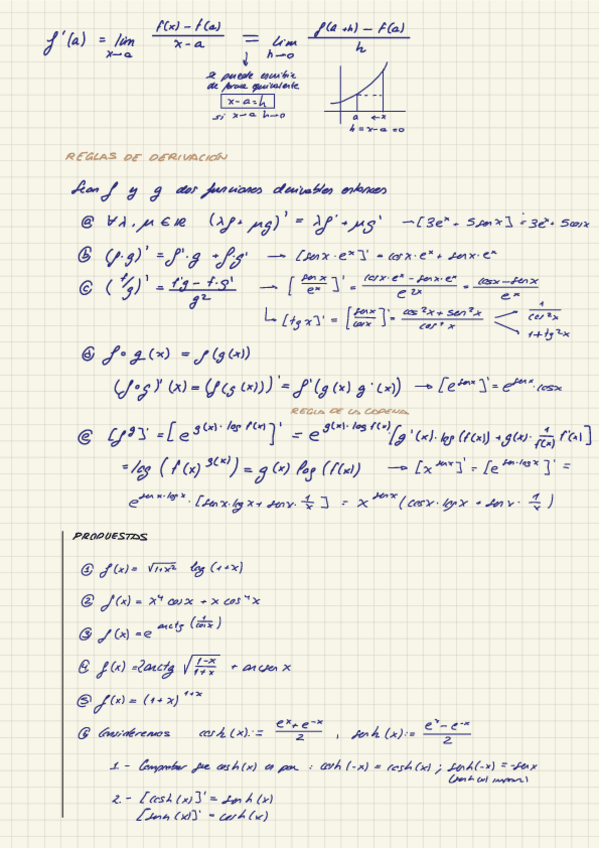 f'(a) = lim x→a (f(x) - f(a))/(x-a) = lim h→0 (f(a+h) - f(a))/h
↓
se puede escribir
de forma equivalente
x-a=h
si x→a h→0
a ←x
h=x-a→0
REGLAS DE DERIVACIÓN
Sean f y g dos funciones derivables entonces
ⓐ ∀λ, μ ∈ ℝ (λf + μg)' = λf' + μg' → [3e^x + 5senx]' = 3e^x + 5cosx
ⓑ (f·g)' = f'·g + f·g' → [senx·e^x]' = cosx·e^x + senx·e^x
ⓒ (f/g)' = (f'g - f·g')/g² → [senx/e^x]' = (cosx·e^x - senx·e^x)/e^2x = (cosx - senx)/e^x
↳ [tgx]' = [senx/cosx]' = (cos²x + sen²x)/cos²x 1/cos²x
1+tg²x
ⓓ f∘g(x) = f(g(x))
(f∘g)'(x) = (f(g(x)))' = f'(g(x) g'(x)) → [e^senx]' = e^senx·cosx
REGLA DE LA CADENA
ⓔ [f^g]' = [e^g(x)·log f(x)]' = e^g(x)·log f(x) [g'(x)·log(f(x)) + g(x)·1/f(x) f'(x)]
= log(f(x)^g(x)) = g(x) log(f(x)) → [x^senx]' = [e^sen·logx]' =
e^senx·logx · [senx·logx + senx·1/x] = x^senx (cosx·logx + senx·1/x)
PROPUESTAS
① f(x) = √(1+x²) log(1+x)
② f(x) = x⁴ cosx + x cos⁴x
③ f(x) = e^arctg(1/cosx)
④ f(x) = 2arctg √((1-x)/(1+x)) + arcsen x
⑤ f(x) = (1+x)^1+x
⑥ Consideremos cosh(x) := (e^x + e^-x)/2 , senh(x) := (e^x - e^-x)/2
1.- Comprobar que cosh(x) es par : cosh(-x) = cosh(x) ; senh(-x) = -senx
(senh(x) impar)
2.- [cosh(x)]' = senh(x)
[senh(x)]' = cosh(x)